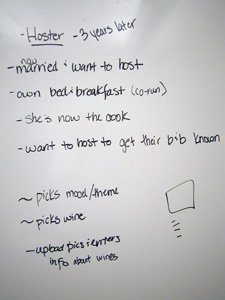 - Hoster - 3 years later
now
- married & want to host
- own bed & breakfast (co-run)
- She's now the cook
- want to host to get their bib known
~ picks mood/theme
~ picks wine
- upload pics & enters
info about wines